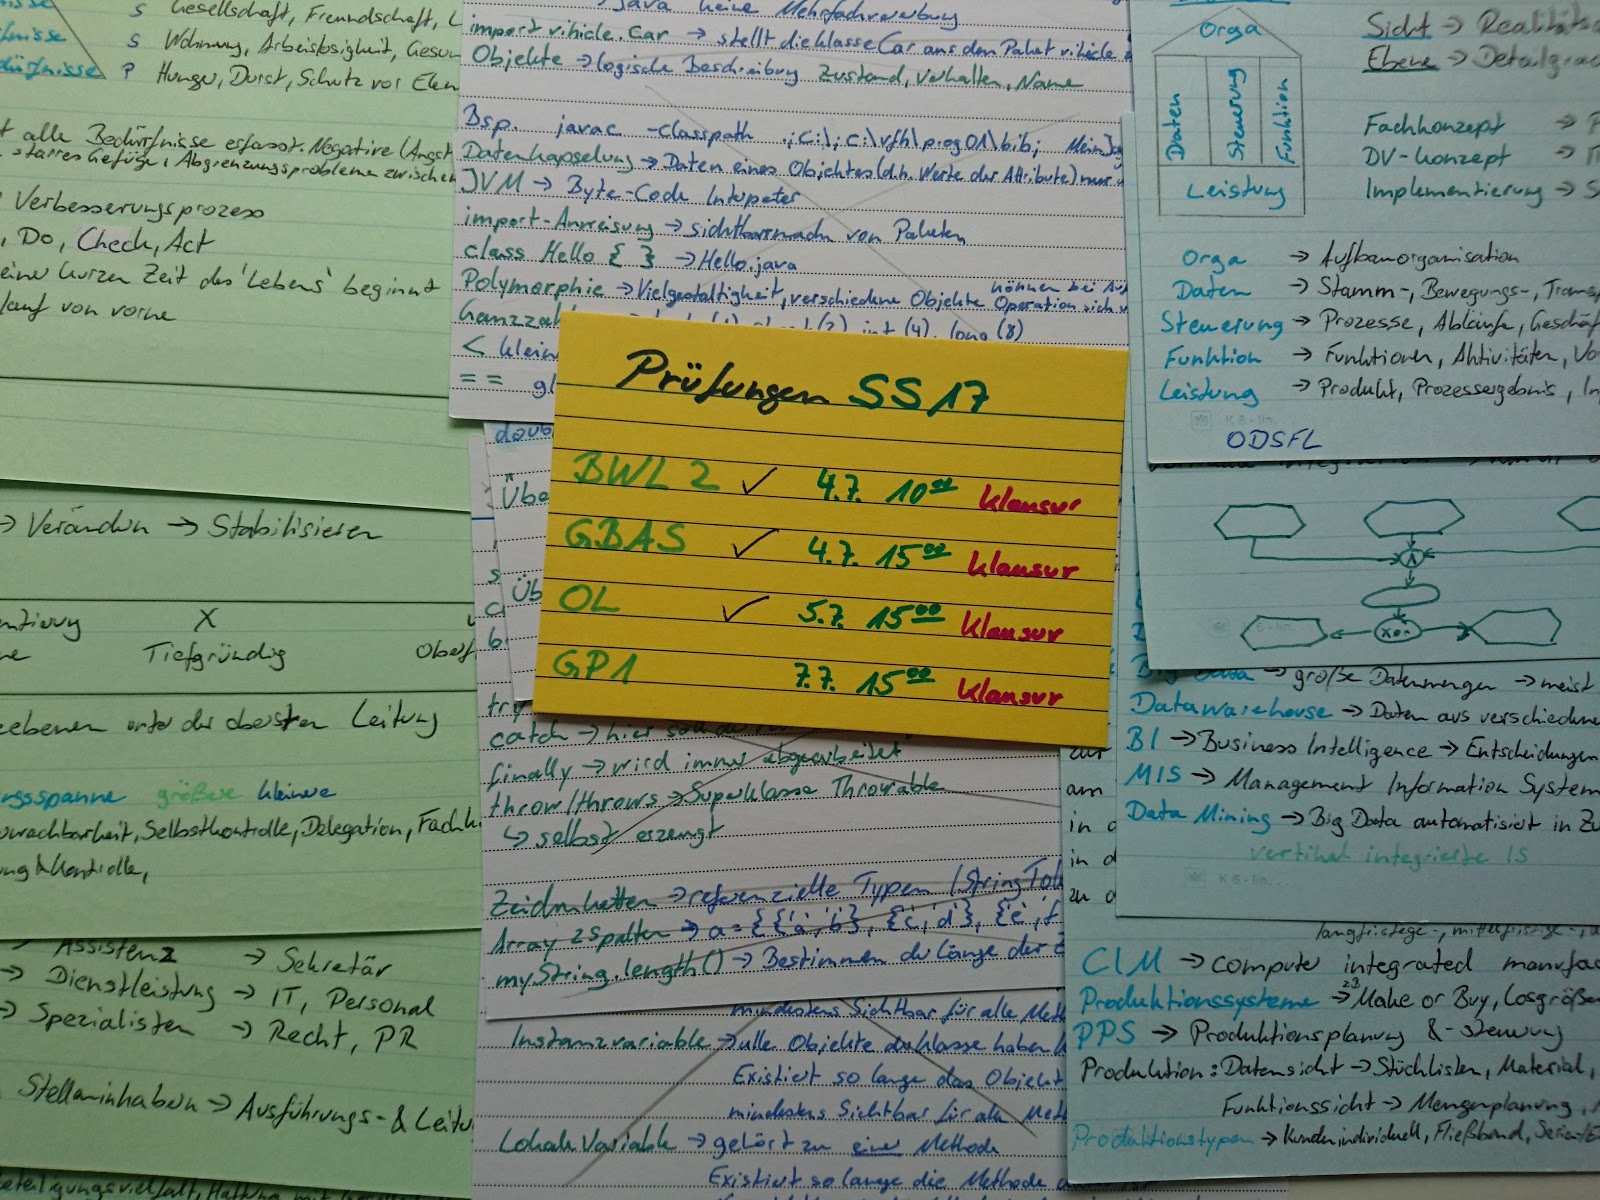 Gesellschaft, Freundschaft,
S Wohnung, Arbeitslosigkeit,
P Hunger, Durst, Schutz vor
alle Bedürfnisse erfasst. Negative (Angst
starres Gefüge, Abgrenzungsprobleme zwischen
Verbesserungsprozess
, Do, Check, Act
einer kurzen Zeit des 'Lebens' beginnt
von vorne
→ Verändern → Stabilisieren
X
Tiefgründig
unter der obersten Leitung
größere kleinere
Selbstkontrolle, Delegation,
& Kontrolle,
→ Assistenz → Sekretär
→ Dienstleistung → IT, Personal
→ Spezialisten → Recht, PR
Stelleninhabern → Ausführungs- &
Java keine Mehrfachvererbung
import vihicle.Car → stellt die Klasse Car aus dem Paket vihicle
Objekte → logische Beschreibung Zustand, Verhalten, Name
Bsp. javac -classpath .;C:\;C:\vfh\prog01\bib;
Datenkapselung → Daten eines Objektes (d.h. Werte der Attribute) nur
JVM → Byte-Code Interpreter
import-Anweisung → sichtbarmachen von Paketen
class Hello { } → Hello.java
Polymorphie → Vielgestaltigkeit, verschiedene Objekte können bei
Operation sich
int (4), long (8)
<
==
Prüfungen SS17
BWL 2 ✓ 4.7. 10⁰⁰ Klausur
GBAS ✓ 4.7. 15⁰⁰ Klausur
OL ✓ 5.7. 15⁰⁰ Klausur
GP1 7.7. 15⁰⁰ Klausur
try
catch → hier soll
finally → wird immer abgearbeitet
throw/throws → Superklasse Throwable
↳ selbst erzeugt
Zeichenketten → referenzielle Typen
Array 2 Spalten → a = {{'a','b'}, {'c','d'}, {'e',
myString.length() → Bestimmen der Länge der
mindestens Sichtbar für alle
Instanzvariable → alle Objekte der Klasse haben
Existiert so lange das Objekt
mindestens Sichtbar für alle
Lokale Variable → gehört zu einer Methode
Existiert so lange die Methode
Orga
Daten
Steuerung
Funktion
Leistung
Sicht →
Ebene →
Fachkonzept →
DV-Konzept →
Implementierung →
Orga → Aufbauorganisation
Daten → Stamm-, Bewegungs-,
Steuerung → Prozesse, Abläufe,
Funktion → Funktionen, Aktivitäten,
Leistung → Produkt, Prozessergebnis,
ODSFL
∧
xor
Big Data → große Datenmengen → meist
Datawarehouse → Daten aus verschiedene
BI → Business Intelligence → Entscheidungen
MIS → Management Information System
Data Mining → Big Data automatisiert in
vertikal integrierte IS
CIM → computer integrated
Produktionssysteme → z.B. Make or Buy,
PPS → Produktionsplanung & -steuerung
Produktion: Datensicht → Stücklisten, Material,
Funktionssicht → Mengenplanung,
Produktionstypen → Kundenindividuell, Fließband,